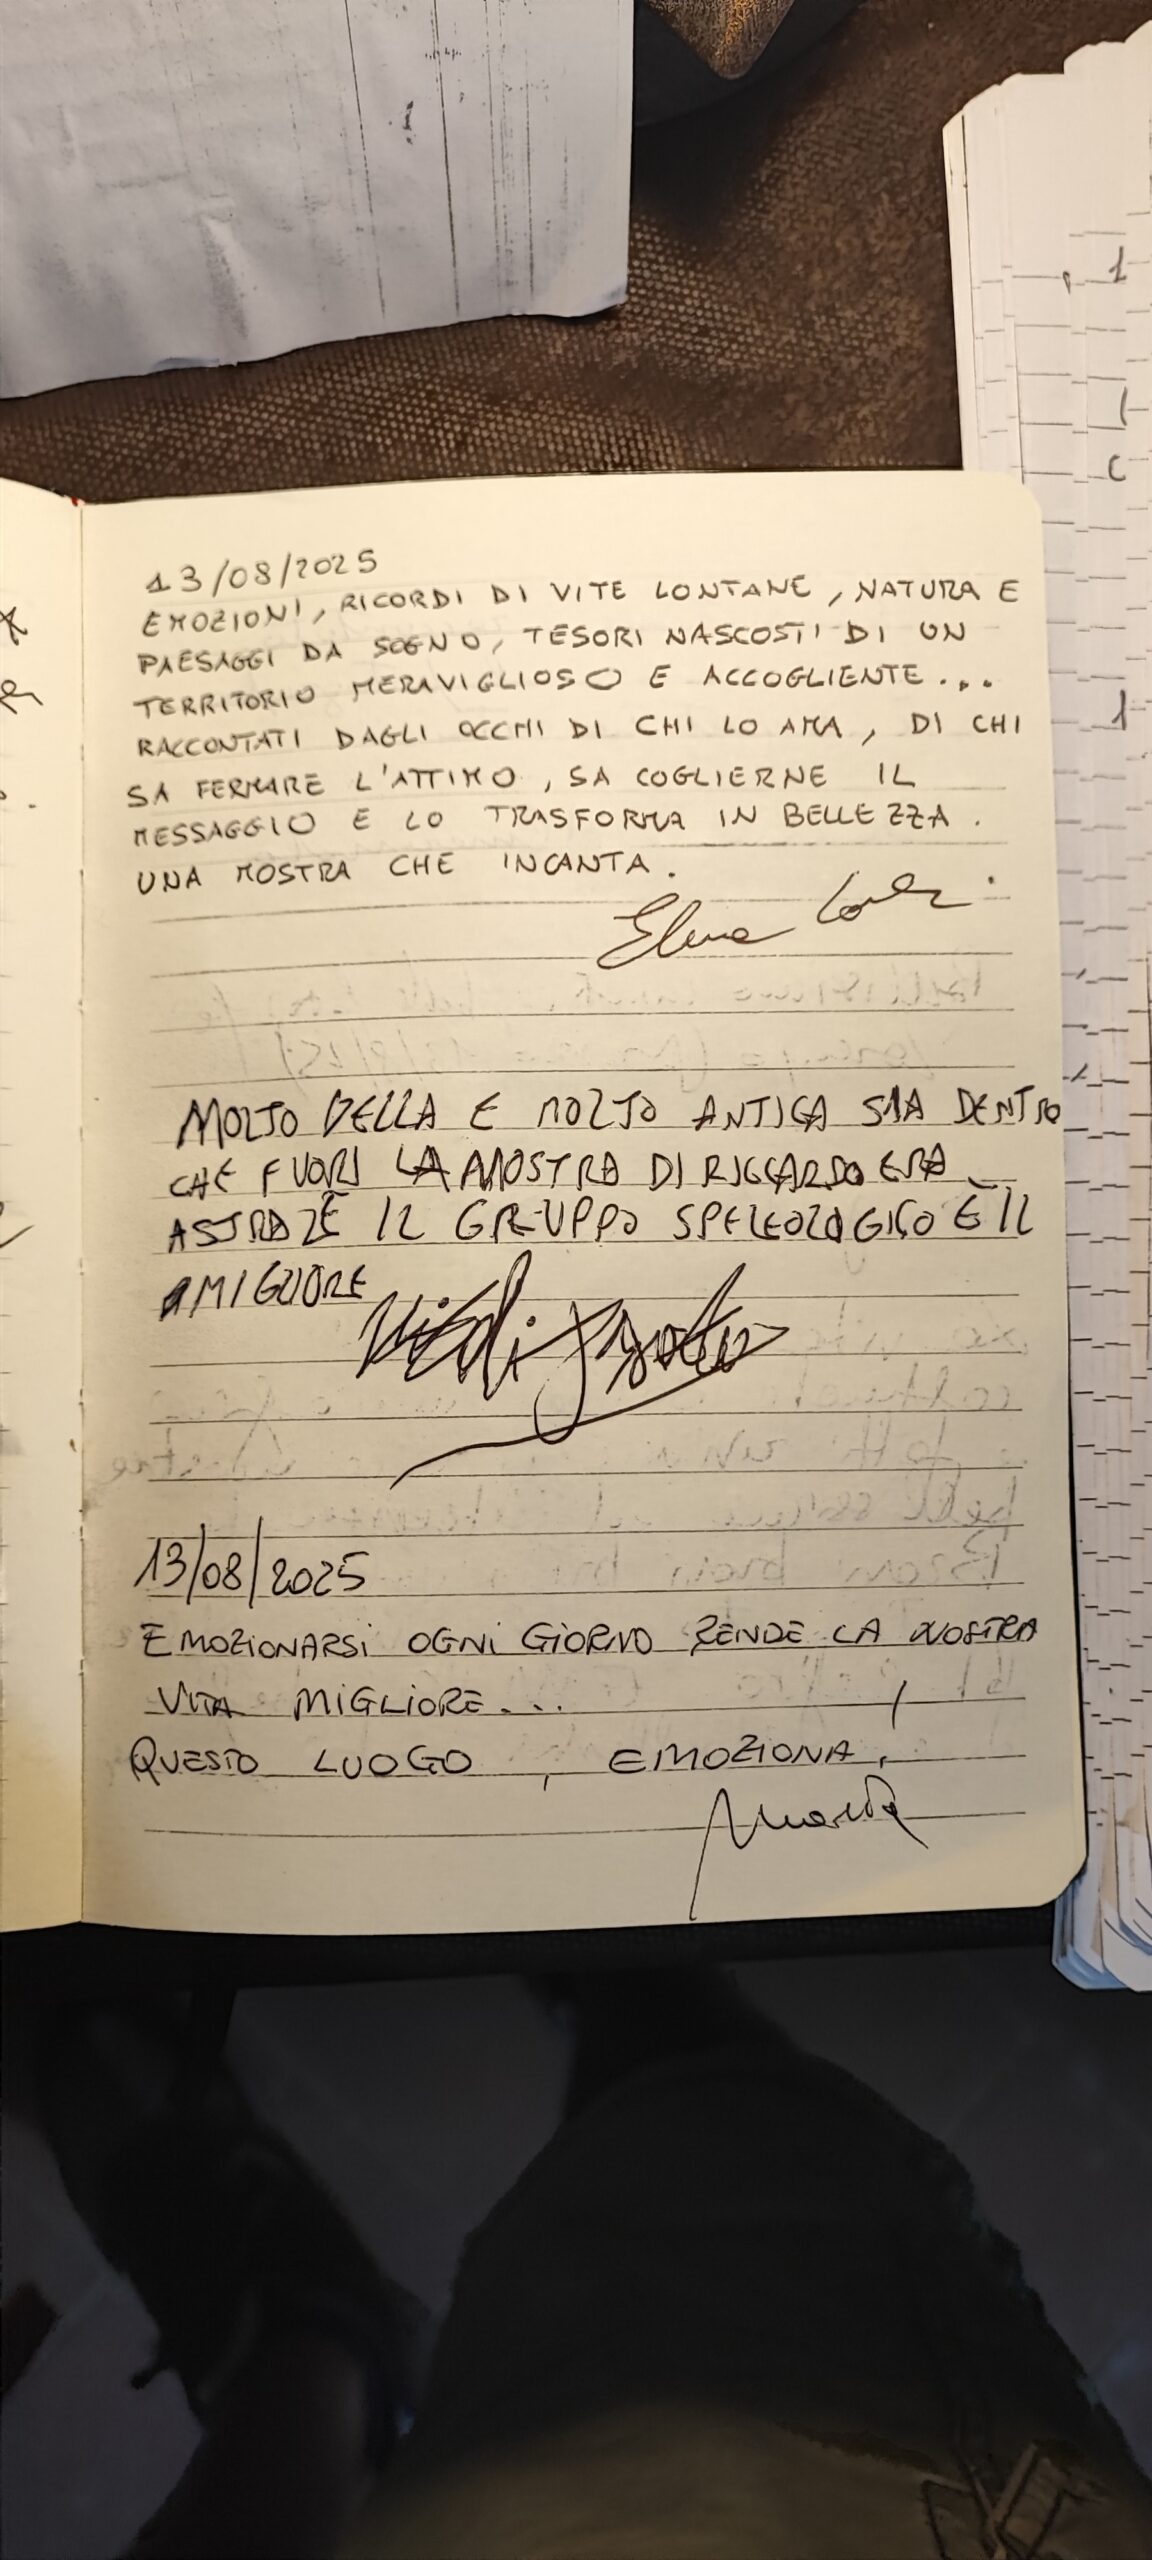 13/08/2025
EMOZIONI, RICORDI DI VITE LONTANE, NATURA E
PAESAGGI DA SOGNO, TESORI NASCOSTI DI UN
TERRITORIO MERAVIGLIOSO E ACCOGLIENTE...
RACCONTATI DAGLI OCCHI DI CHI LO AMA, DI CHI
SA FERMARE L'ATTIMO, SA COGLIERNE IL
MESSAGGIO E LO TRASFORMA IN BELLEZZA.
UNA MOSTRA CHE INCANTA.
Elena
MOLTO BELLA E MOLTO ANTICA SIA DENTRO
CHE FUORI LA MOSTRA DI RICCARDO ERA
IL GRUPPO SPELEOLOGICO È IL
MIGLIORE
13/08/2025
EMOZIONARSI OGNI GIORNO RENDE LA NOSTRA
VITA MIGLIORE...
QUESTO LUOGO, EMOZIONA.